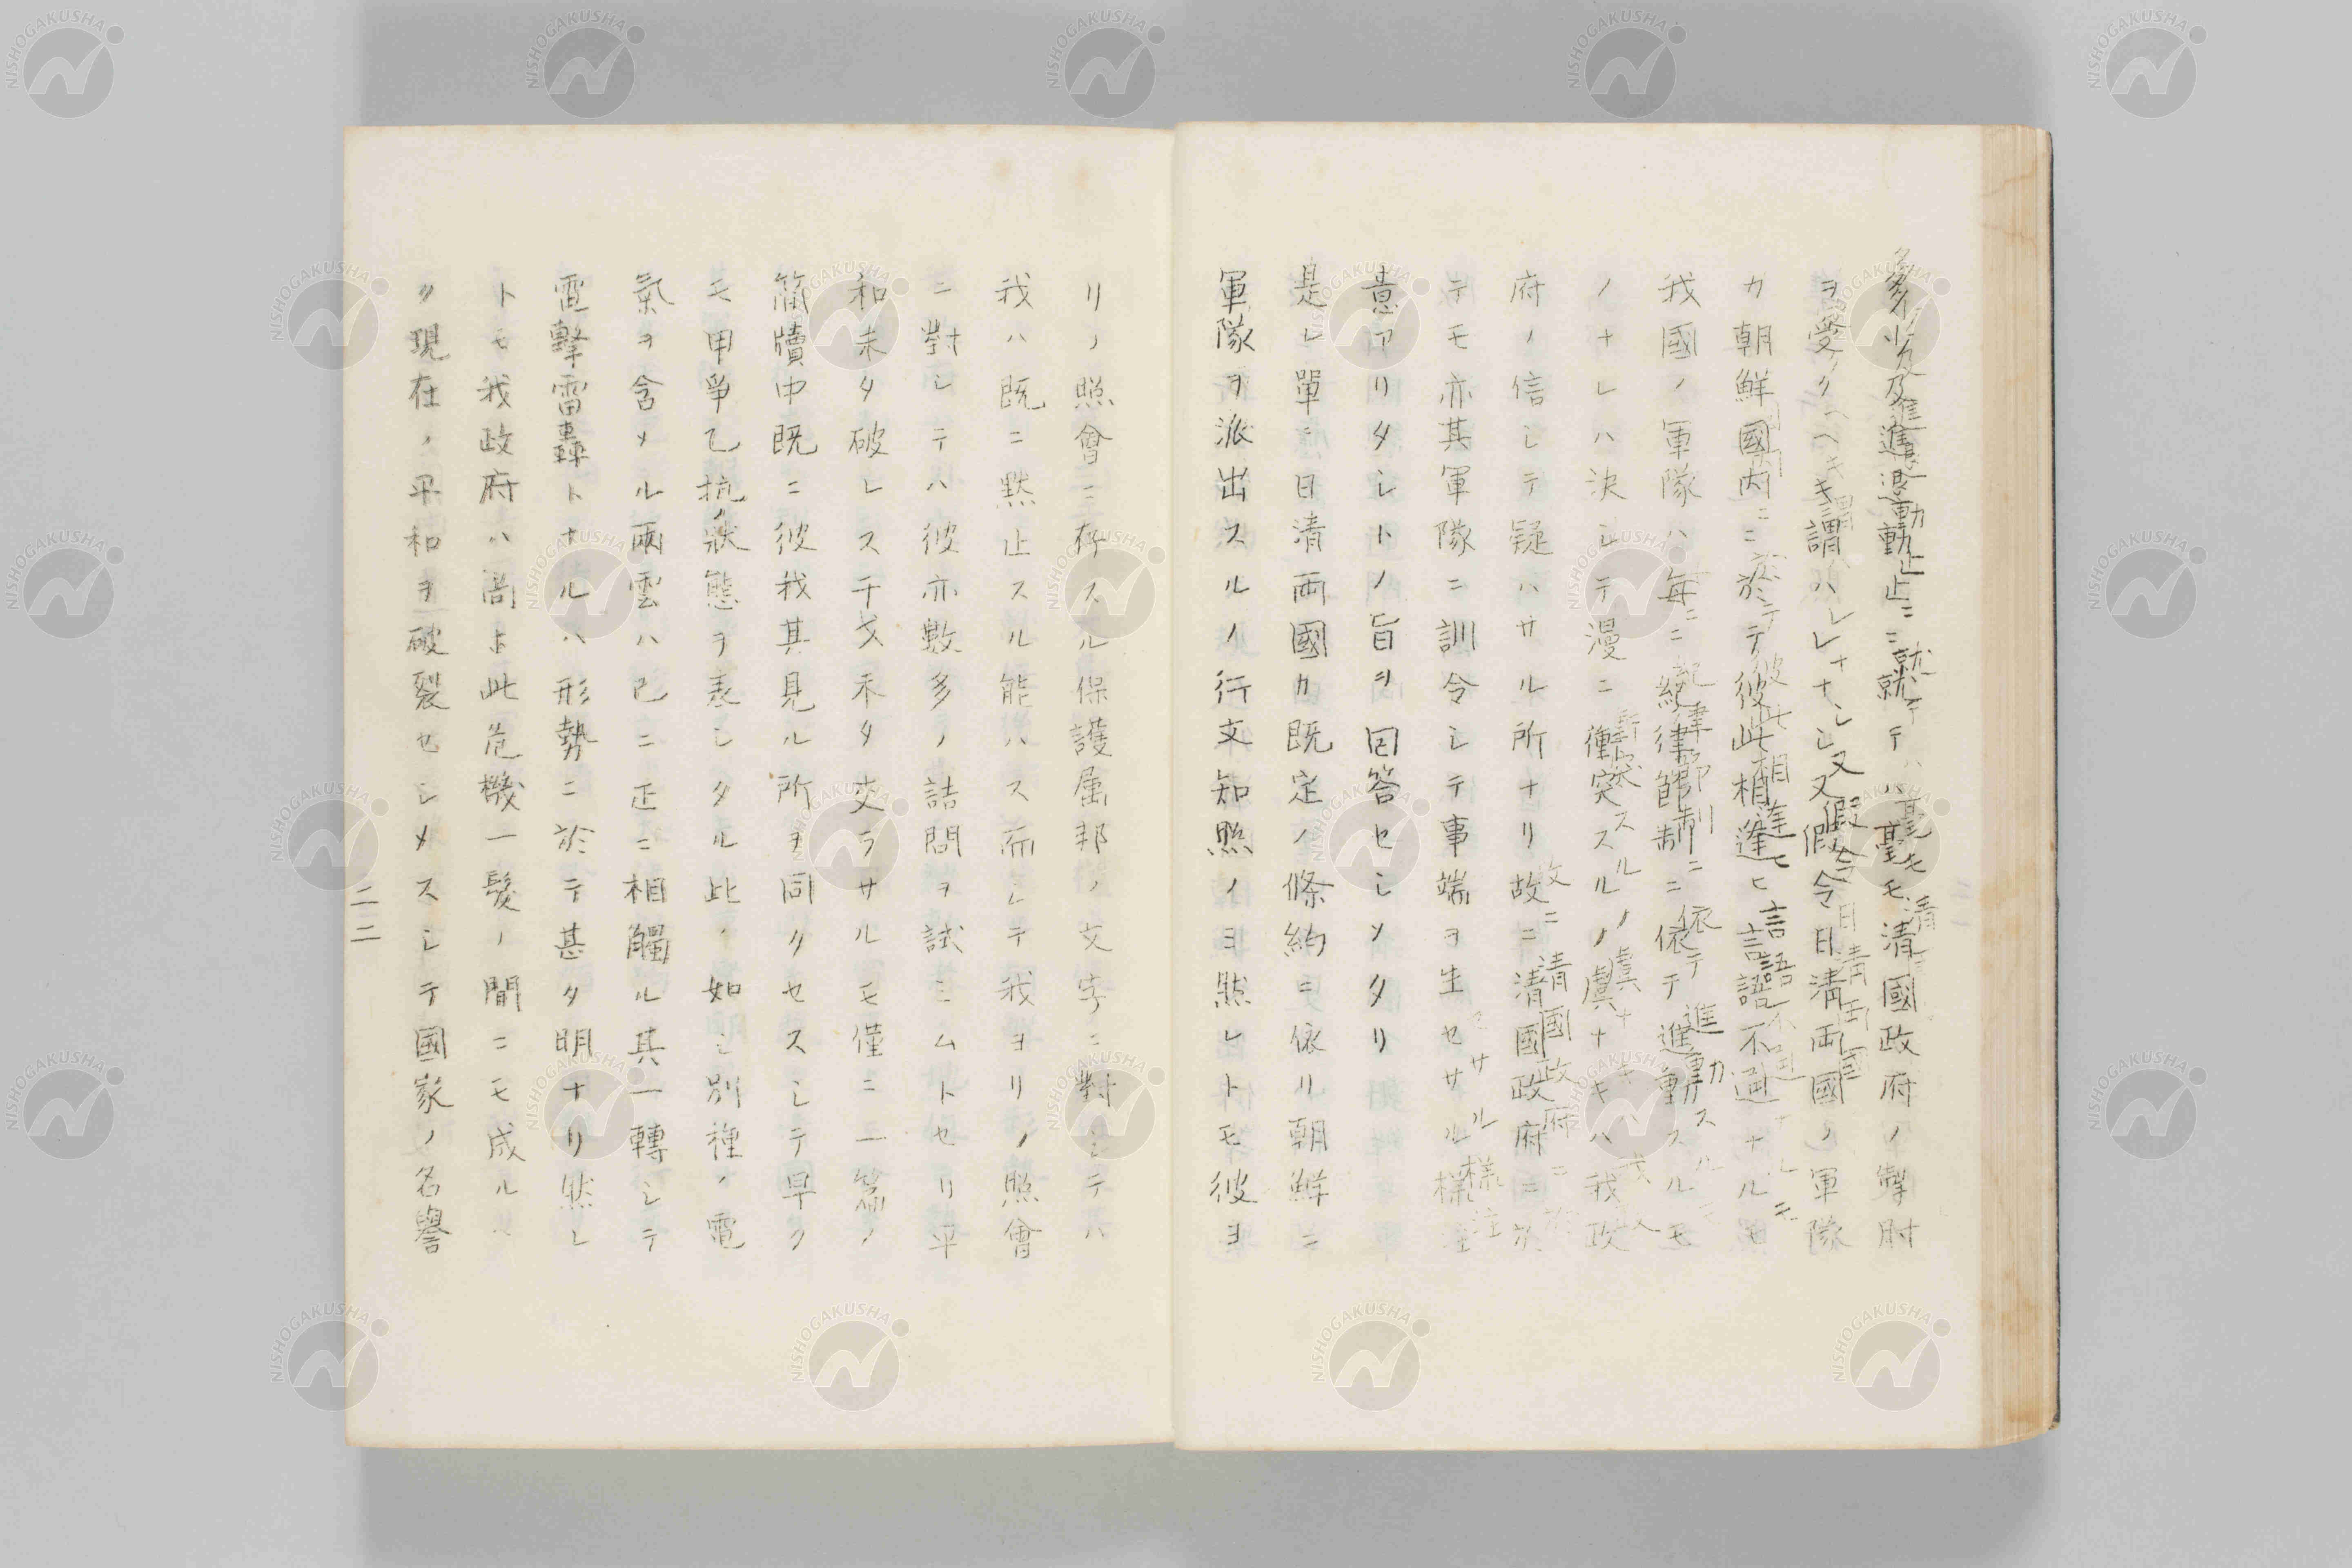 多少及進退動止ニ就テハ毫モ清國政府ノ掣肘
ヲ受クヘキ謂ハレナシ又假令日清両國ノ軍隊
カ朝鮮國内ニ於テ彼此相逢ヒ言語不通ナルモ
我國ノ軍隊ハ毎ニ紀律節制ニ依テ進動スルモ
ノナレハ決シテ漫ニ衝突スルノ虞ナキハ我政
府ノ信シテ疑ハサル所ナリ故ニ清國政府ニ於
テモ亦其軍隊ニ訓令シテ事端ヲ生セサル様注
意アリタシトノ旨ヲ回答セシメタリ
是レ單ニ日清両國カ既定ノ條約ニ依リ朝鮮ニ
軍隊ヲ派出スルノ行文知照ノミ然レトモ彼ヨ
リノ照會ニ存スル保護属邦ノ文字ニ對シテハ
我ハ既ニ黙止スル能ハス而シテ我ヨリノ照會
ニ對シテハ彼亦数多ノ詰問ヲ試ミムトセリ平
和未タ破レス干戈未タ交ラサルモ僅ニ一篇ノ
簡牘中既ニ彼我其見ル所ヲ同クセスシテ早ク
モ甲争乙抗ノ状態ヲ表シタル此ノ如シ別種ノ電
氣ヲ含メル兩雲ハ已ニ正ニ相觸ル其一轉シテ
電撃雷轟トナルハ形勢ニ於テ甚タ明ナリ然レ
トモ我政府ハ尚ホ此危機一髮ノ間ニモ成ルヘ
ク現在ノ平和ヲ破裂セシメスシテ國家ノ名譽
二二
NISHOGAKUSHA